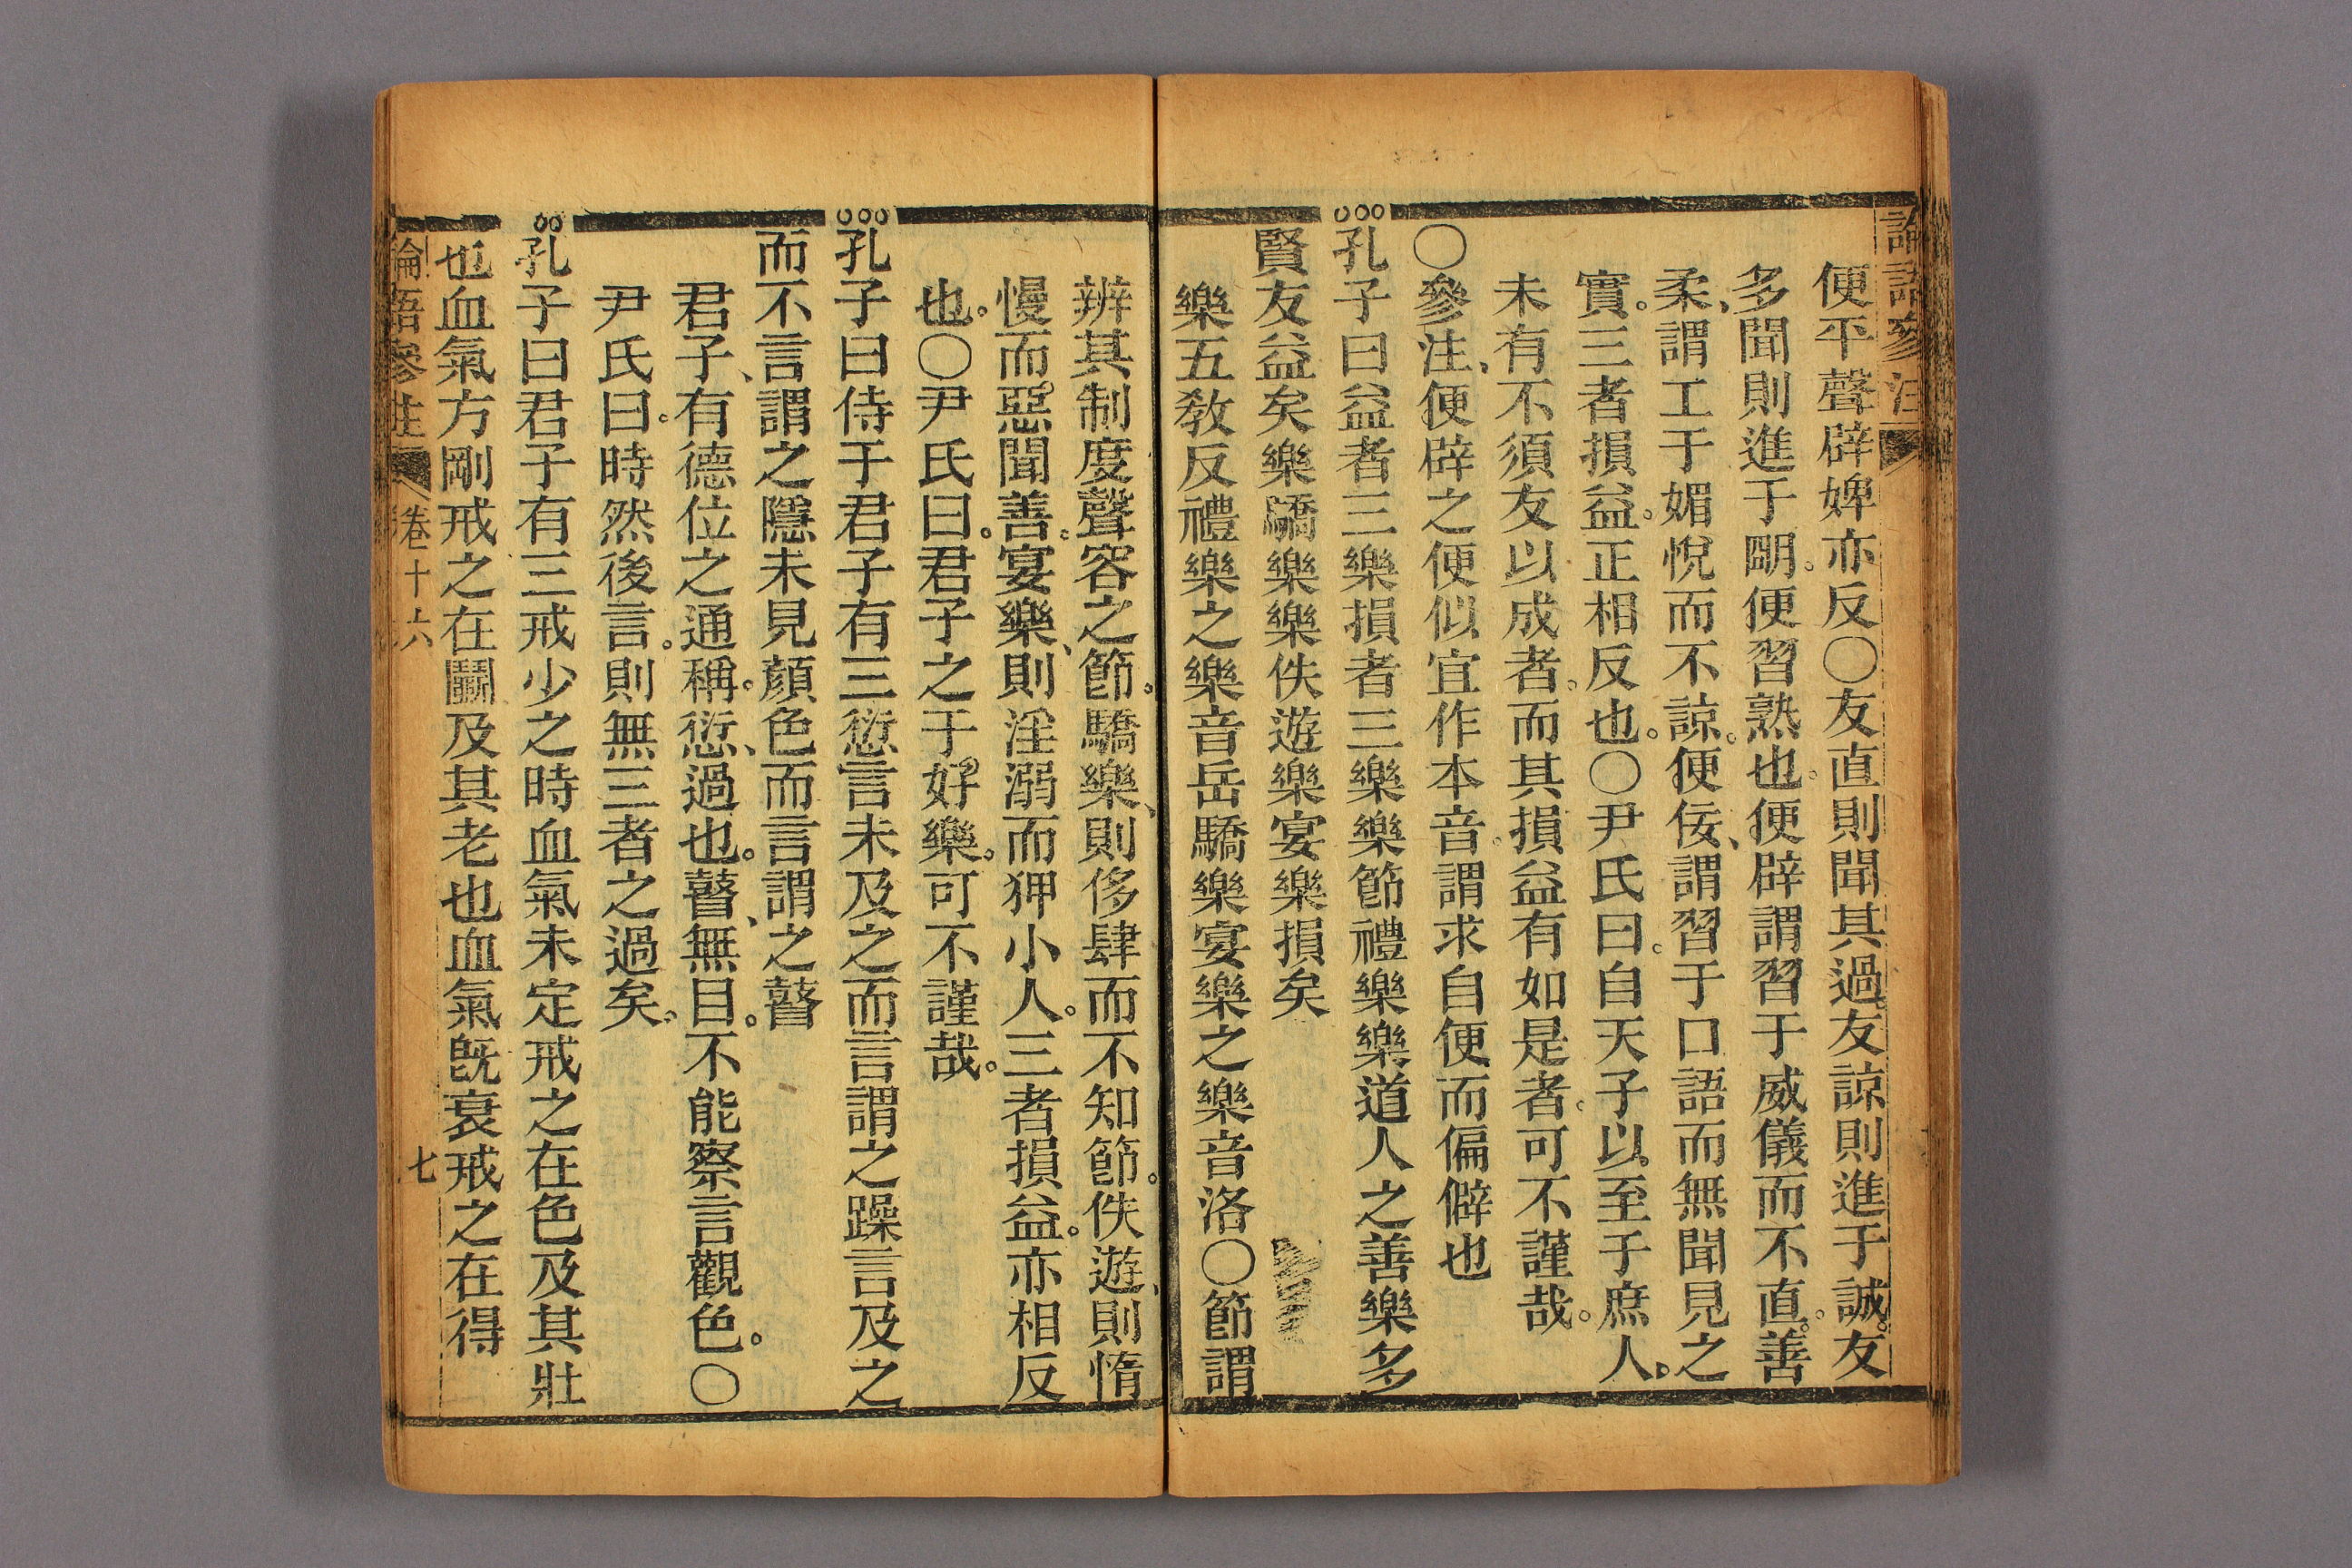 論語參注
便平聲辟婢亦反〇友直則聞其過。友諒則進于誠。友
多聞則進于明。便習熟也。便辟謂習于威儀而不直。善
柔、謂工于媚悅而不諒。便佞、謂習于口語而無聞見之
實。三者損益。正相反也。〇尹氏曰。自天子以至于庶人。
未有不須友以成者。而其損益有如是者。可不謹哉。
〇參注、便辟之便似宜作本音。謂求自便而偏僻也
孔子曰益者三樂損者三樂樂節禮樂樂道人之善樂多
賢友益矣樂驕樂樂佚遊樂宴樂損矣
樂五教反禮樂之樂音岳驕樂宴樂之樂音洛〇節謂
辨其制度聲容之節。驕樂、則侈肆而不知節。佚遊、則惰
慢而惡聞善。宴樂、則淫溺而狎小人。三者損益。亦相反
也。〇尹氏曰。君子之于好樂。可不謹哉。
孔子曰侍于君子有三愆言未及之而言謂之躁言及之
而不言謂之隱未見顏色而言謂之瞽
君子、有德位之通稱。愆、過也。瞽、無目。不能察言觀色。〇
尹氏曰。時然後言。則無三者之過矣。
孔子曰君子有三戒少之時血氣未定戒之在色及其壯
也血氣方剛戒之在鬭及其老也血氣既衰戒之在得
論語參注 卷十六 七